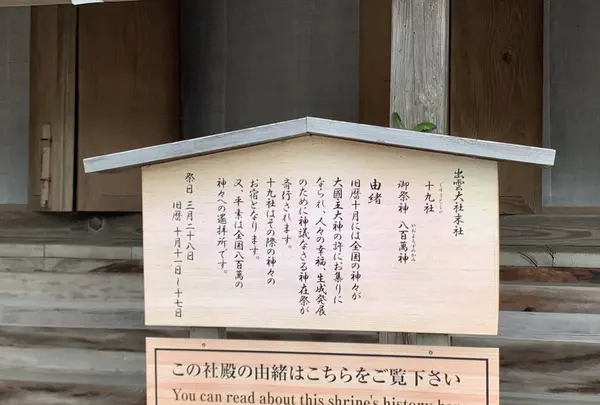 出雲大社末社
十九社
じゅうくしゃ
御祭神 八百萬神
やおよろずのかみ
由緒
旧暦十月には全国の神々が
大國主大神の許にお集りに
なられ、人々の幸福、生成発展
のために神議なさる神在祭が
斎行されます。
十九社はその際の神々の
お宿となります。
又、平素は全国八百萬の
神々への遥拝所です。
祭日 三月二十八日
旧暦 十月十一日~十七日
この社殿の由緒はこちらをご覧下さい
You can read about this shrine's history here